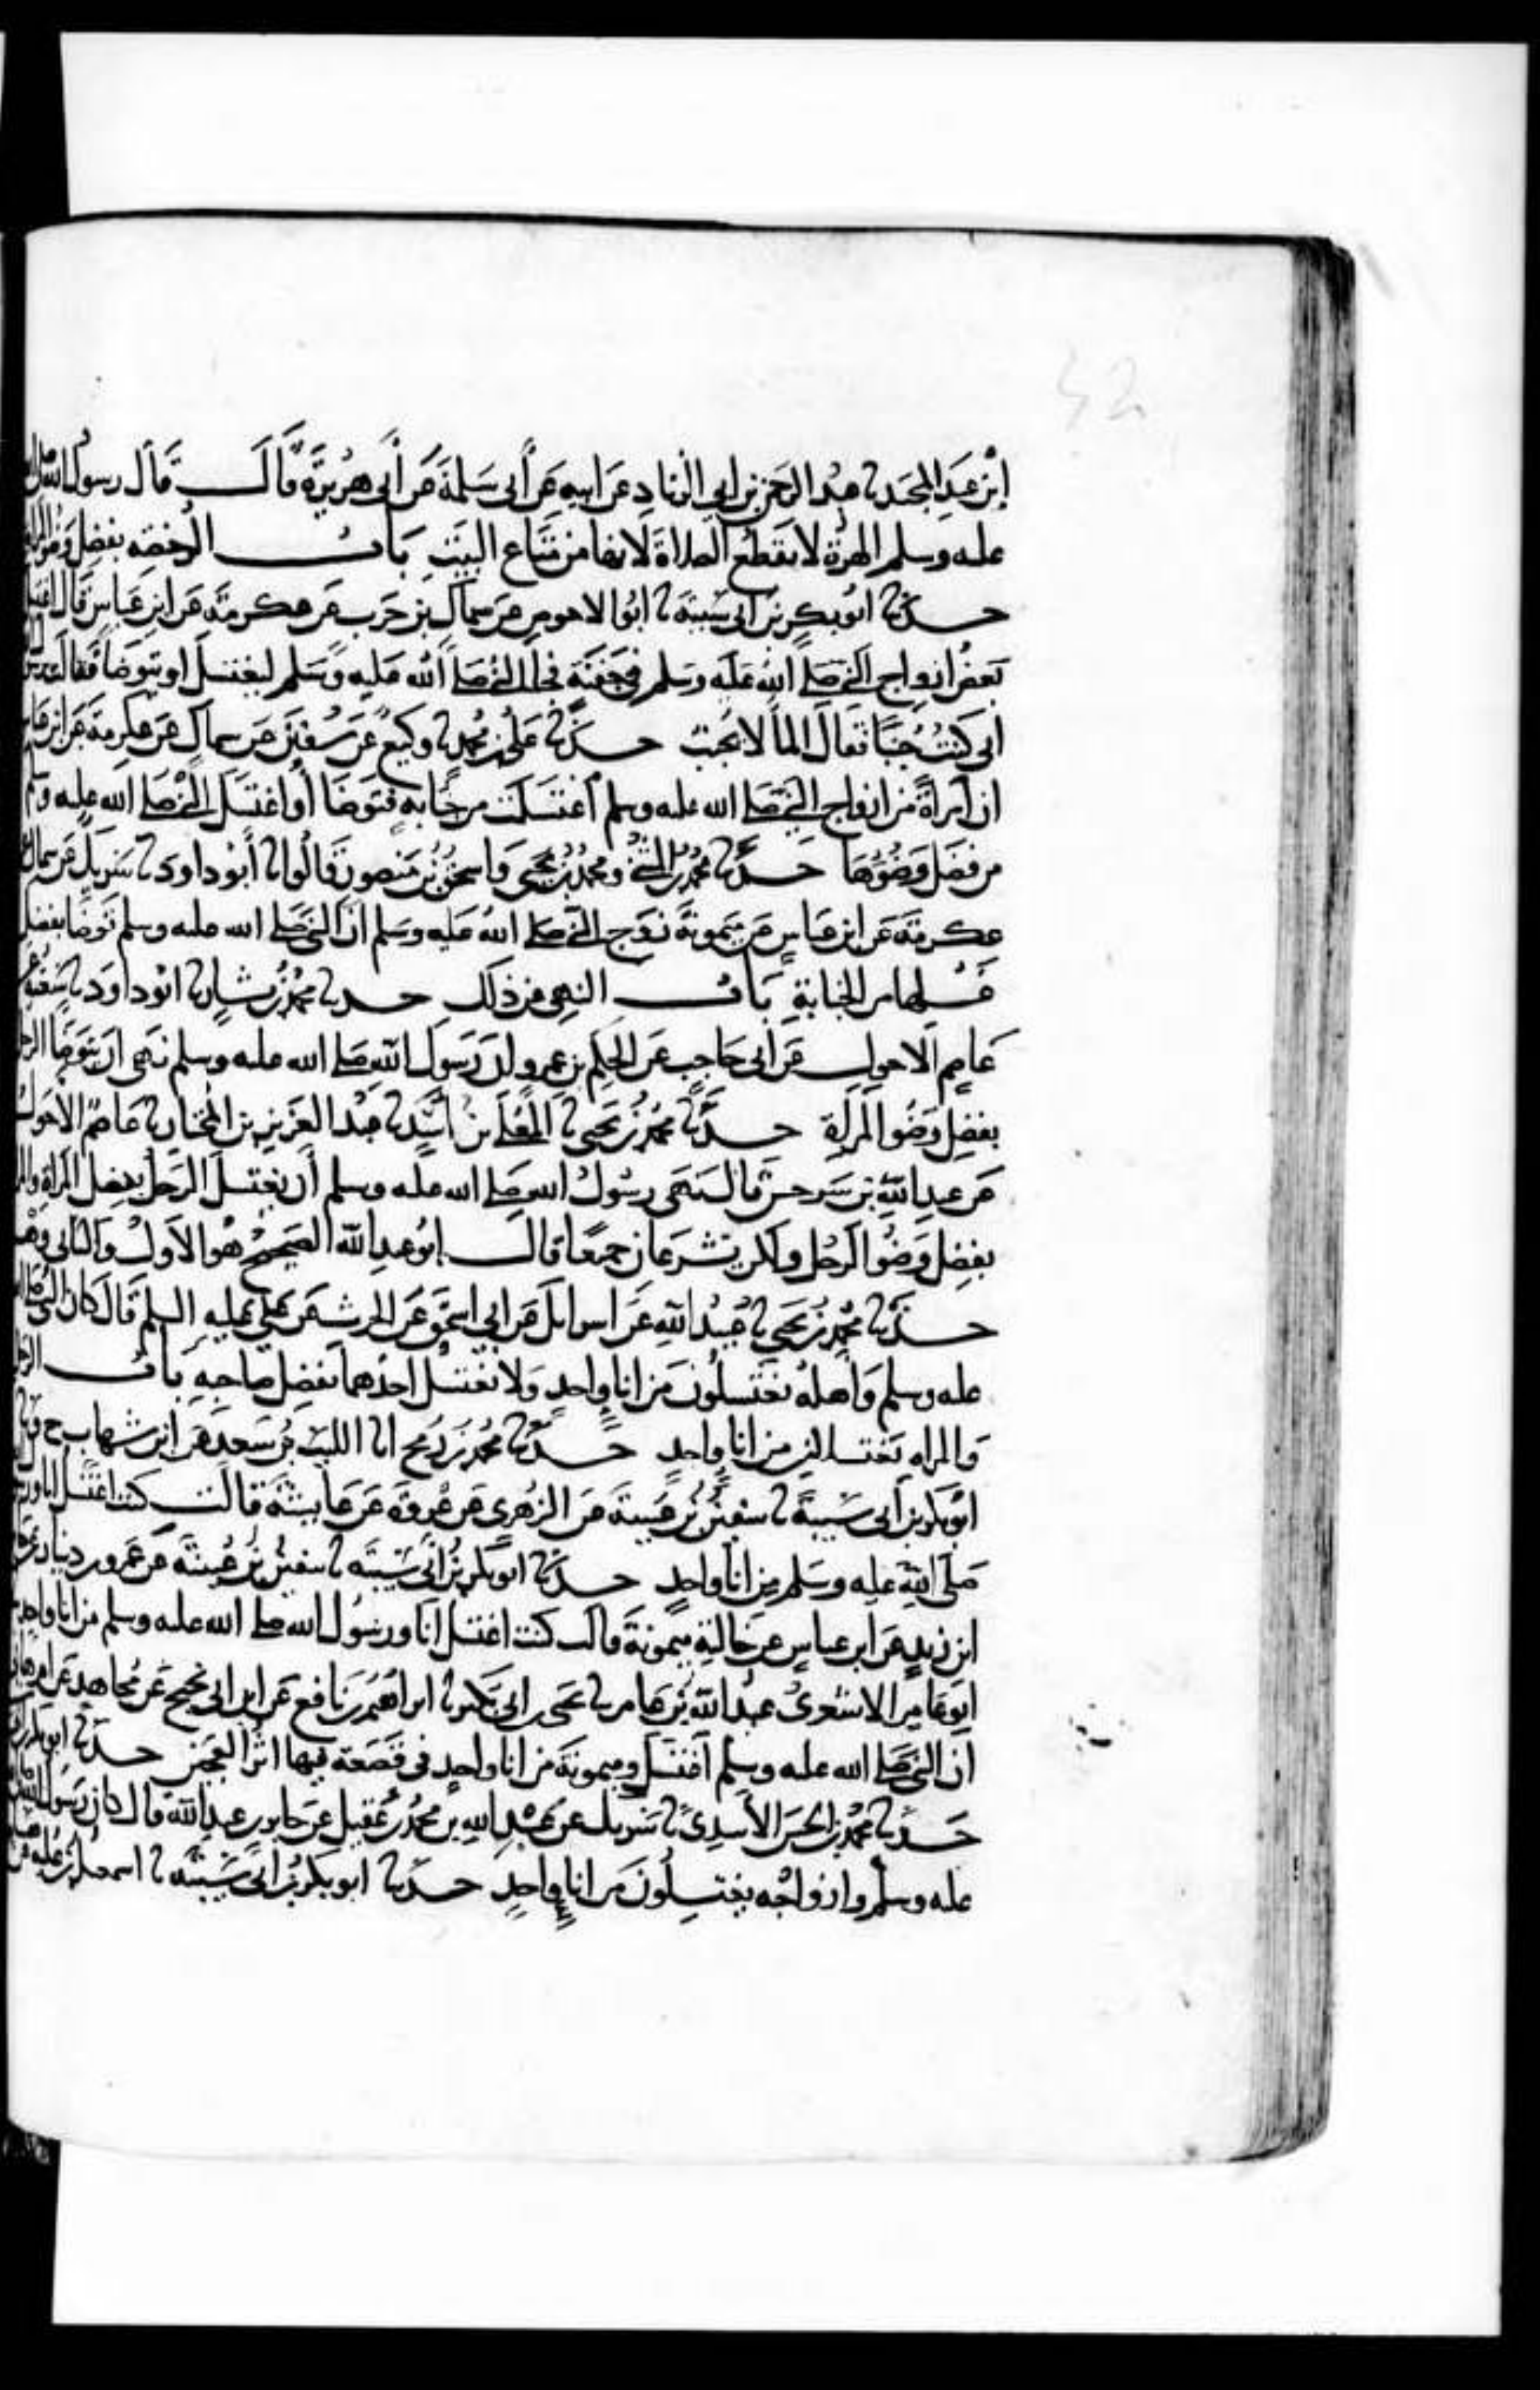 ابن عبد المجيد نا عبد الرحمن بن ابي الزناد عن ابيه عن أبي سلمة عن أبي هريرة قال قال رسول الله
عليه وسلم الهرة لا تقطع الصلاة لانها من متاع البيت باب الرخصه بفضل وضو المراة
حدثنا ابو بكر بن ابي شيبة نا ابو الاحوص عن سماك بن حرب عن عكرمة عن ابن عباس قال اغتسل
بعض ازواج النبي صلى الله عليه وسلم في جفنة فجا النبي صلى الله عليه وسلم ليغتسل او يتوضا فقالت
اني كنت جنبا فقال الما لا يجنب حدثنا علي بن محمد نا وكيع عن سفين عن سماك عن عكرمة عن ابن عباس
ان امراة من ازواج النبي صلى الله عليه وسلم اغتسلت من جنابه فتوضا أو اغتسل النبي صلى الله عليه وسلم
من فضل وضوها حدثنا محمد بن المثنى ومحمد بن يحيى واسحق بن منصور قالوا نا أبو داود نا شريك عن سماك
عكرمة عن ابن عباس عن ميمونة زوج النبي صلى الله عليه وسلم ان النبي صلى الله عليه وسلم توضا بفضل
غسلها من الجنابة باب النهي من ذلك حدثنا محمد بن بشار نا ابو داود نا شعبة
عاصم الاحول عن ابي حاجب عن الحكم بن عمرو ان رسول الله صلى الله عليه وسلم نهى ان يتوضا الرجل
بفضل وضو المراة حدثنا محمد بن يحيى نا المعلى بن اسد نا عبد العزيز بن المختار نا عاصم الاحول
عن عبد الله بن سرجس قال نهى رسول الله صلى الله عليه وسلم أن يغتسل الرجل بفضل المراة
بفضل وضو الرجل ولكن يشرعان جميعا قال ابو عبد الله الصحيح هو الاول والثاني وهم
حدثنا محمد بن يحيى نا عبيد الله عن اسرائل عن ابي اسحق عن الحرث عن علي عليه السلم قال كان النبي صلى
عليه وسلم واهله يغتسلون من انا واحد ولا يغتسل احدهما بفضل صاحبه باب الرجل
والمراه يغتسلان من انا واحد حدثنا محمد بن رمح انا الليث بن سعد عن ابن شهاب ح
ابو بكر بن أبي شيبة نا سفين بن عيينة عن الزهري عن عروة عن عايشة قالت كنت اغتسل انا
صلى الله عليه وسلم من انا واحد حدثنا ابو بكر بن أبي شيبة نا سفين بن عيينة عن عمرو بن دينار
ابن زيد عن ابن عباس عن خالته ميمونة قالت كنت اغتسل انا ورسول الله صلى الله عليه وسلم من انا واحد
ابو عامر الاشعري عبد الله بن عامر نا يحيى بن ابي بكير نا ابراهيم بن نافع عن ابن ابي نجيح عن مجاهد عن ام هاني
ان النبي صلى الله عليه وسلم اغتسل وميمونة من انا واحد في قصعة فيها اثر العجين حدثنا ابو بكر
حدثنا محمد بن الحسن الاسدي نا شريك عن عبد الله بن محمد بن عقيل عن جابر بن عبد الله قال كان رسول الله
عليه وسلم وازواجه يغتسلون من انا واحد حدثنا ابو بكر بن أبي شيبة نا اسمعيل بن علية